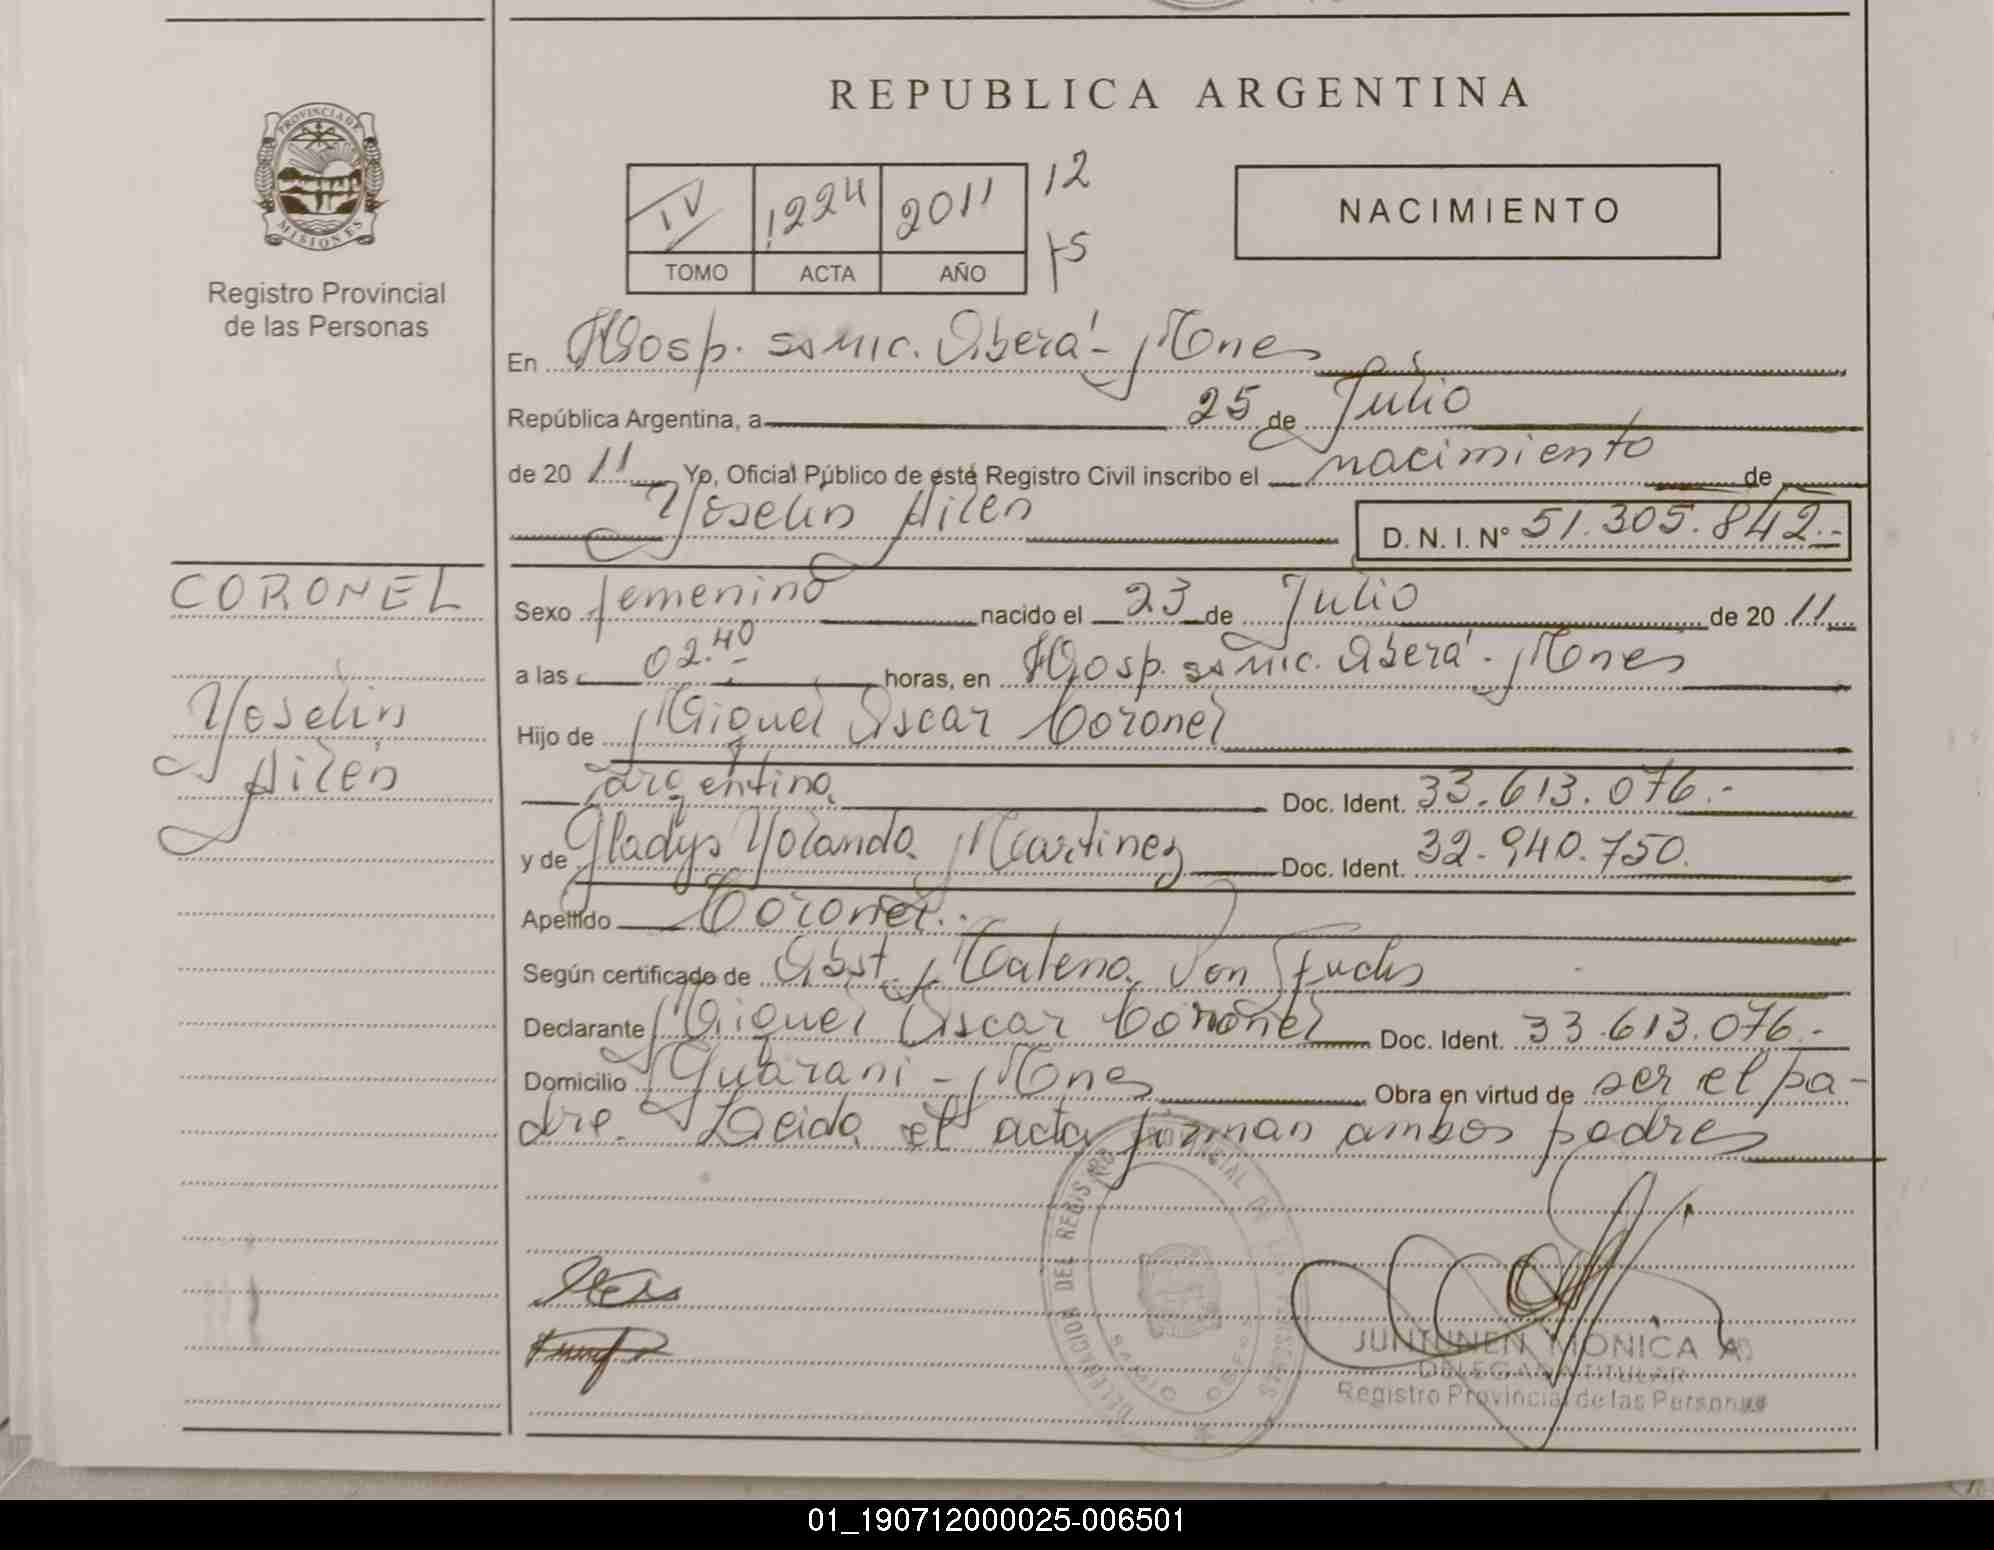 REPUBLICA ARGENTINA
PROVINCIA DE
MISIONES
Registro Provincial
de las Personas
IV 1224 2011 12
TOMO ACTA AÑO 15
NACIMIENTO
En Hosp. Samic. Oberá - Mnes
República Argentina, a 25 de Julio
de 20 11 Yo, Oficial Público de este Registro Civil inscribo el nacimiento de
Yoselin Ailén D. N. I. Nº 51.305.842.-
CORONEL
Yoselin
Ailén
Sexo femenino nacido el 23 de Julio de 20 11
a las 02.40 horas, en Hosp. Samic. Oberá - Mnes
Hijo de Miguel Oscar Coronel
argentina Doc. Ident. 33.613.076.-
y de Gladys Yolanda Martinez Doc. Ident. 32.940.750.
Apellido Coronel.
Según certificado de Obst. Malena Von Fuchs
Declarante Miguel Oscar Coronel Doc. Ident. 33.613.076.-
Domicilio Guaraní - Mnes Obra en virtud de ser el pa-
dre. Leida el acta firman ambos padres
JUNTUNEN MONICA A
DELEGADA TITULAR
Registro Provincial de las Personas
01_190712000025-006501